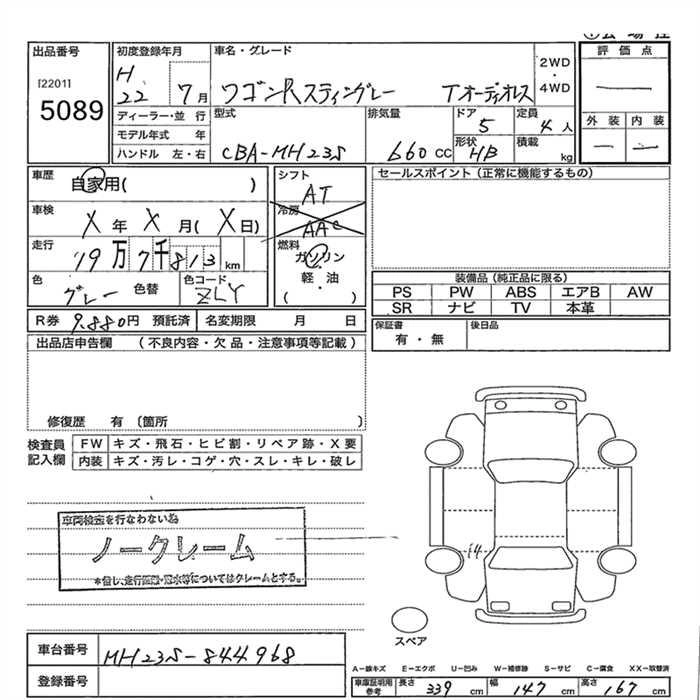 出品番号
[2201]
5089
初度登録年月
H
22 7月
ディーラー・並 行
モデル年式 年
ハンドル 左・右
車名・グレード
ワゴンRスティングレー Tオーディオレス
2WD
・
4WD
型式
CBA-MH23S
排気量
660 CC
ドア
5
形状
HB
定員
4 人
積載
kg
評 価 点
外 装 内 装
車歴
自家用( )
車検
X 年 X 月( X 日)
走行
19万7千813 km
色
グレー 色替
色コード
ZLY
シフト
AT
冷房
AAC
燃料
ガソリン
・
軽・油
( )
R券 9.880円 預託済 名変期限 月 日
セールスポイント(正常に機能するもの)
装備品(純正品に限る)
PS PW ABS エアB AW
SR ナビ TV 本革
保証書
有・無
後日品
出品店申告欄 (不良内容・欠品・注意事項等記載)
修復歴 有〔箇所 〕
検査員
記入欄
FW キズ・飛石・ヒビ割・リペア跡・X要
内装 キズ・汚レ・コゲ・穴・スレ・キレ・破レ
車両検査を行なわない為
ノークレーム
*但し、走行距離・冠水等についてはクレームとする。
車台番号 MH23S-844968
登録番号
i4
スペア
A-線キズ E-エクボ U-凹み W-補修跡 S-サビ C-腐食 XX-取替済
車庫証明用
参考
長さ 339 cm 幅 147 cm 高さ 167 cm